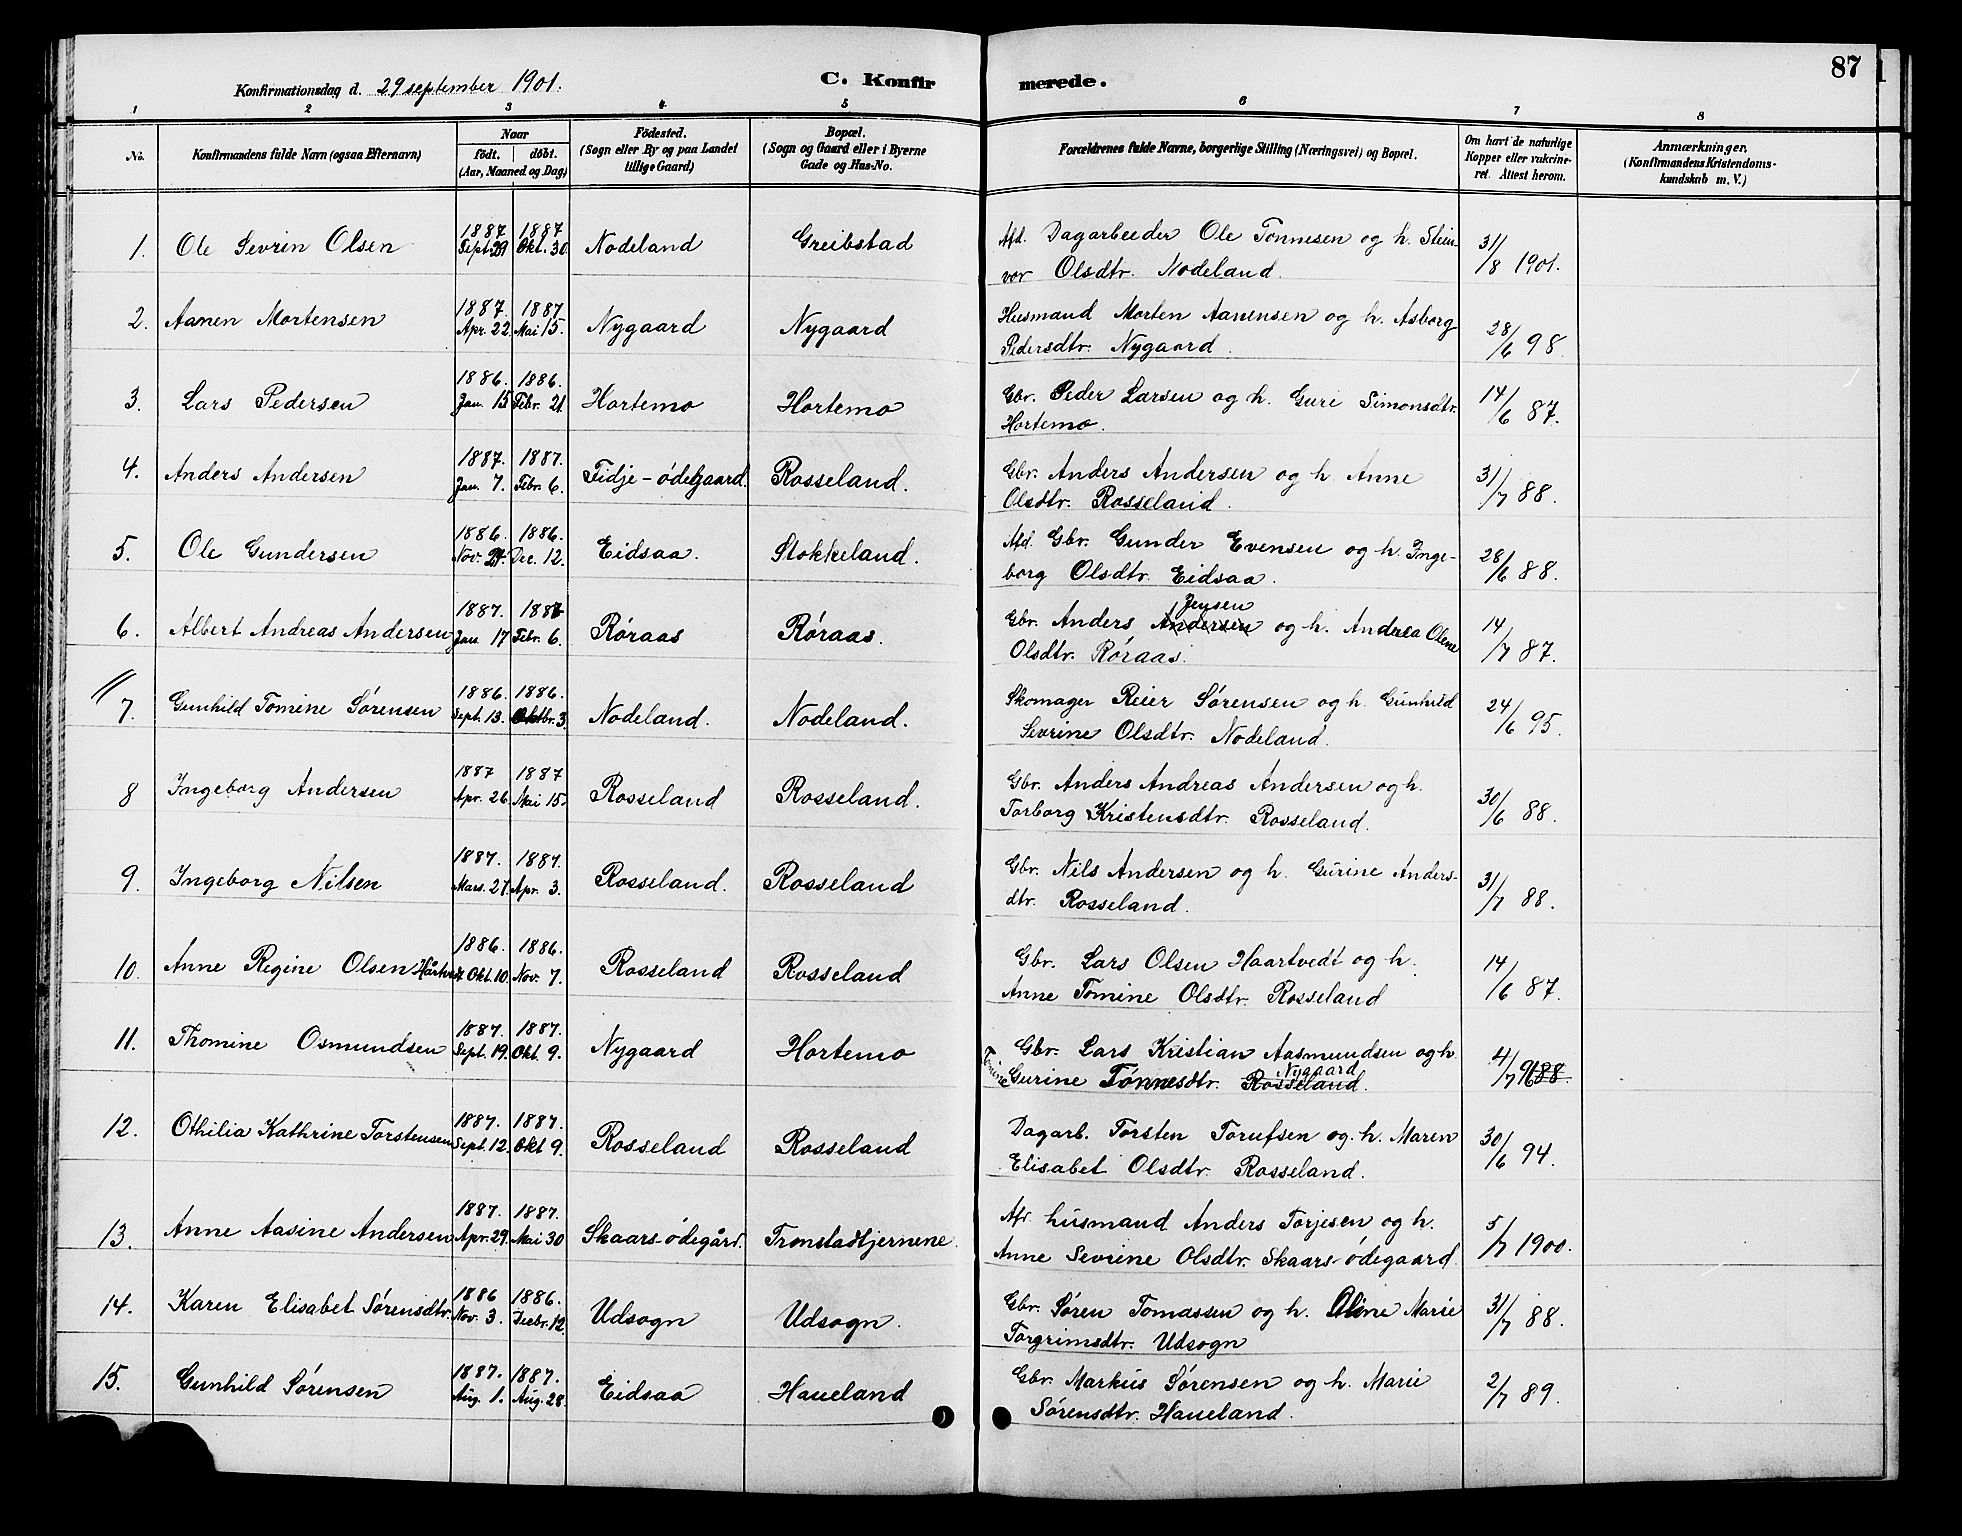 87
Konfirmationsdag d. 29 september 1901.
C. Konfirmerede.
1 2 3 4 5 6 7 8
No.
Konfirmandens fulde Navn (ogsaa Efternavn)
Naar
födt. döbt.
(Aar, Maaned og Dag)
Födested.
(Sogn eller By og paa Landet
tillige Gaard)
Bopæl.
(Sogn og Gaard eller i Byerne
Gade og Hus-No.
Forældrenes fulde Navne, borgerlige Stilling (Næringsvei) og Bopæl.
Om havt de naturlige
Kopper eller vakcine-
ret. Attest herom.
Anmærkninger.
(Konfirmandens Kristendoms-
kundskab m. V.)
1. Ole Sevrin Olsen 1887 Sept. 29 1887 Okt. 30 Nodeland Greibstad Afd. Dagarbeider Ole Tønnesen og h. Stein-
vor Olsdtr. Nodeland. 31/8 1901.
2. Aanen Mortensen 1887. Apr. 22 1887 Mai 15. Nygaard Nygaard Husmand Morten Aanensen og h. Asborg
Pedersdtr. Nygaard. 28/6 98.
3. Lars Pedersen 1886. Jan. 15 1886. Febr. 21 Hortemo Hortemo Gbr. Peder Larsen og h. Guri Simonsdtr.
Hortemo. 14/6 87.
4. Anders Andersen 1887. Jan. 7. 1887. Febr. 6. Fidje-ødegaard. Rosseland. Gbr. Anders Andersen og h. Anne
Olsdtr. Rosseland. 31/7 88.
5. Ole Gundersen 1886. Nov. 1886. Dec. 12. Eidsaa. Stokkeland. Afd. Gbr. Gunder Evensen og h. Inge-
borg Olsdtr. Eidsaa. 28/6 88.
6. Albert Andreas Andersen 1887. Jan. 17 1887 Febr. 6. Røraas Røraas. Gbr. Anders Andersen Jensen og h. Andrea Olene
Olsdtr. Røraas. 14/7 87.
7. Gunhild Tomine Sørensen 1886. Sept. 13. 1886. Oktbr. 3. Nodeland. Nodeland. Skomager Reier Sørensen og h. Gunhild
Sevrine Olsdtr. Nodeland. 24/6 95.
8 Ingeborg Andersen 1887 Apr. 26 1887 Mai 15. Rosseland Rosseland. Gbr. Anders Andreas Andersen og h.
Torborg Kristensdtr. Rosseland. 30/6 88.
9. Ingeborg Nilsen 1887. Mars. 27. 1887. Apr. 3. Rosseland. Rosseland Gbr. Nils Andersen og h. Gurine Anders-
dtr. Rosseland. 31/7 88.
10. Anne Regine Olsen Hårtvedt 1886. Okt. 10. 1886. Nov. 7. Rosseland Rosseland Gbr. Lars Olsen Haartvedt og h.
Anne Tomine Olsdtr. Rosseland 14/6 87.
11. Thomine Osmundsen 1887. Sept. 19. 1887. Okt. 9. Nygaard Hortemo Gbr. Lars Kristian Aasmundsen og h.
Tomine Gurine Tønnesdtr. Rosseland. Nygaard 4/7 96 88.
12. Othilia Kathrine Torstensen 1887. Sept. 12. 1887. Okt 9. Rosseland Rosseland Dagarb. Torsten Torufsen og. h. Maren
Elisabet Olsdtr. Rosseland. 30/6 94.
13. Anne Aasine Andersen 1887. Apr. 29. 1887. Mai 30 Skaars-ødegård. Tronstadtjernene. Afd. husmand Anders Torjesen og h.
Anne Sevrine Olsdtr. Skaars-ødegaard. 5/7 1900.
14. Karen Elisabet Sørensdtr. 1886 Nov. 3. 1886. Decbr. 12. Udsogn Udsogn. Gbr. Søren Tomassen og h. Oline Marie
Torgrimsdtr. Udsogn 31/7 88.
15. Gunhild Sørensen 1887. Aug. 1. 1887. Aug. 28. Eidsaa Haueland Gbr. Markus Sørensen og h. Marie
Sørensdtr. Haueland. 2/7 89.